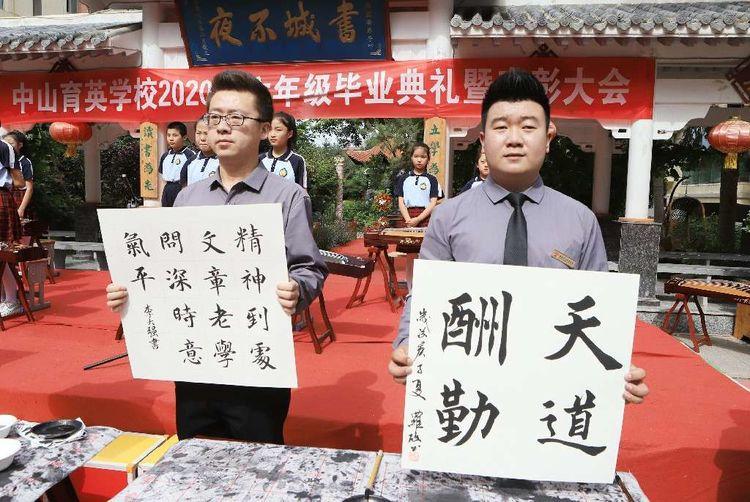 書城不夜
中山育英学校2020
年级毕业典礼暨表彰大会
讀書為先
立學
精神到處
文章老學
問深時意
氣平
天道
酬勤
庚子夏